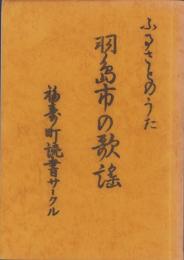 ふるさとのうた
羽島市の歌謡
福寿町読書サークル